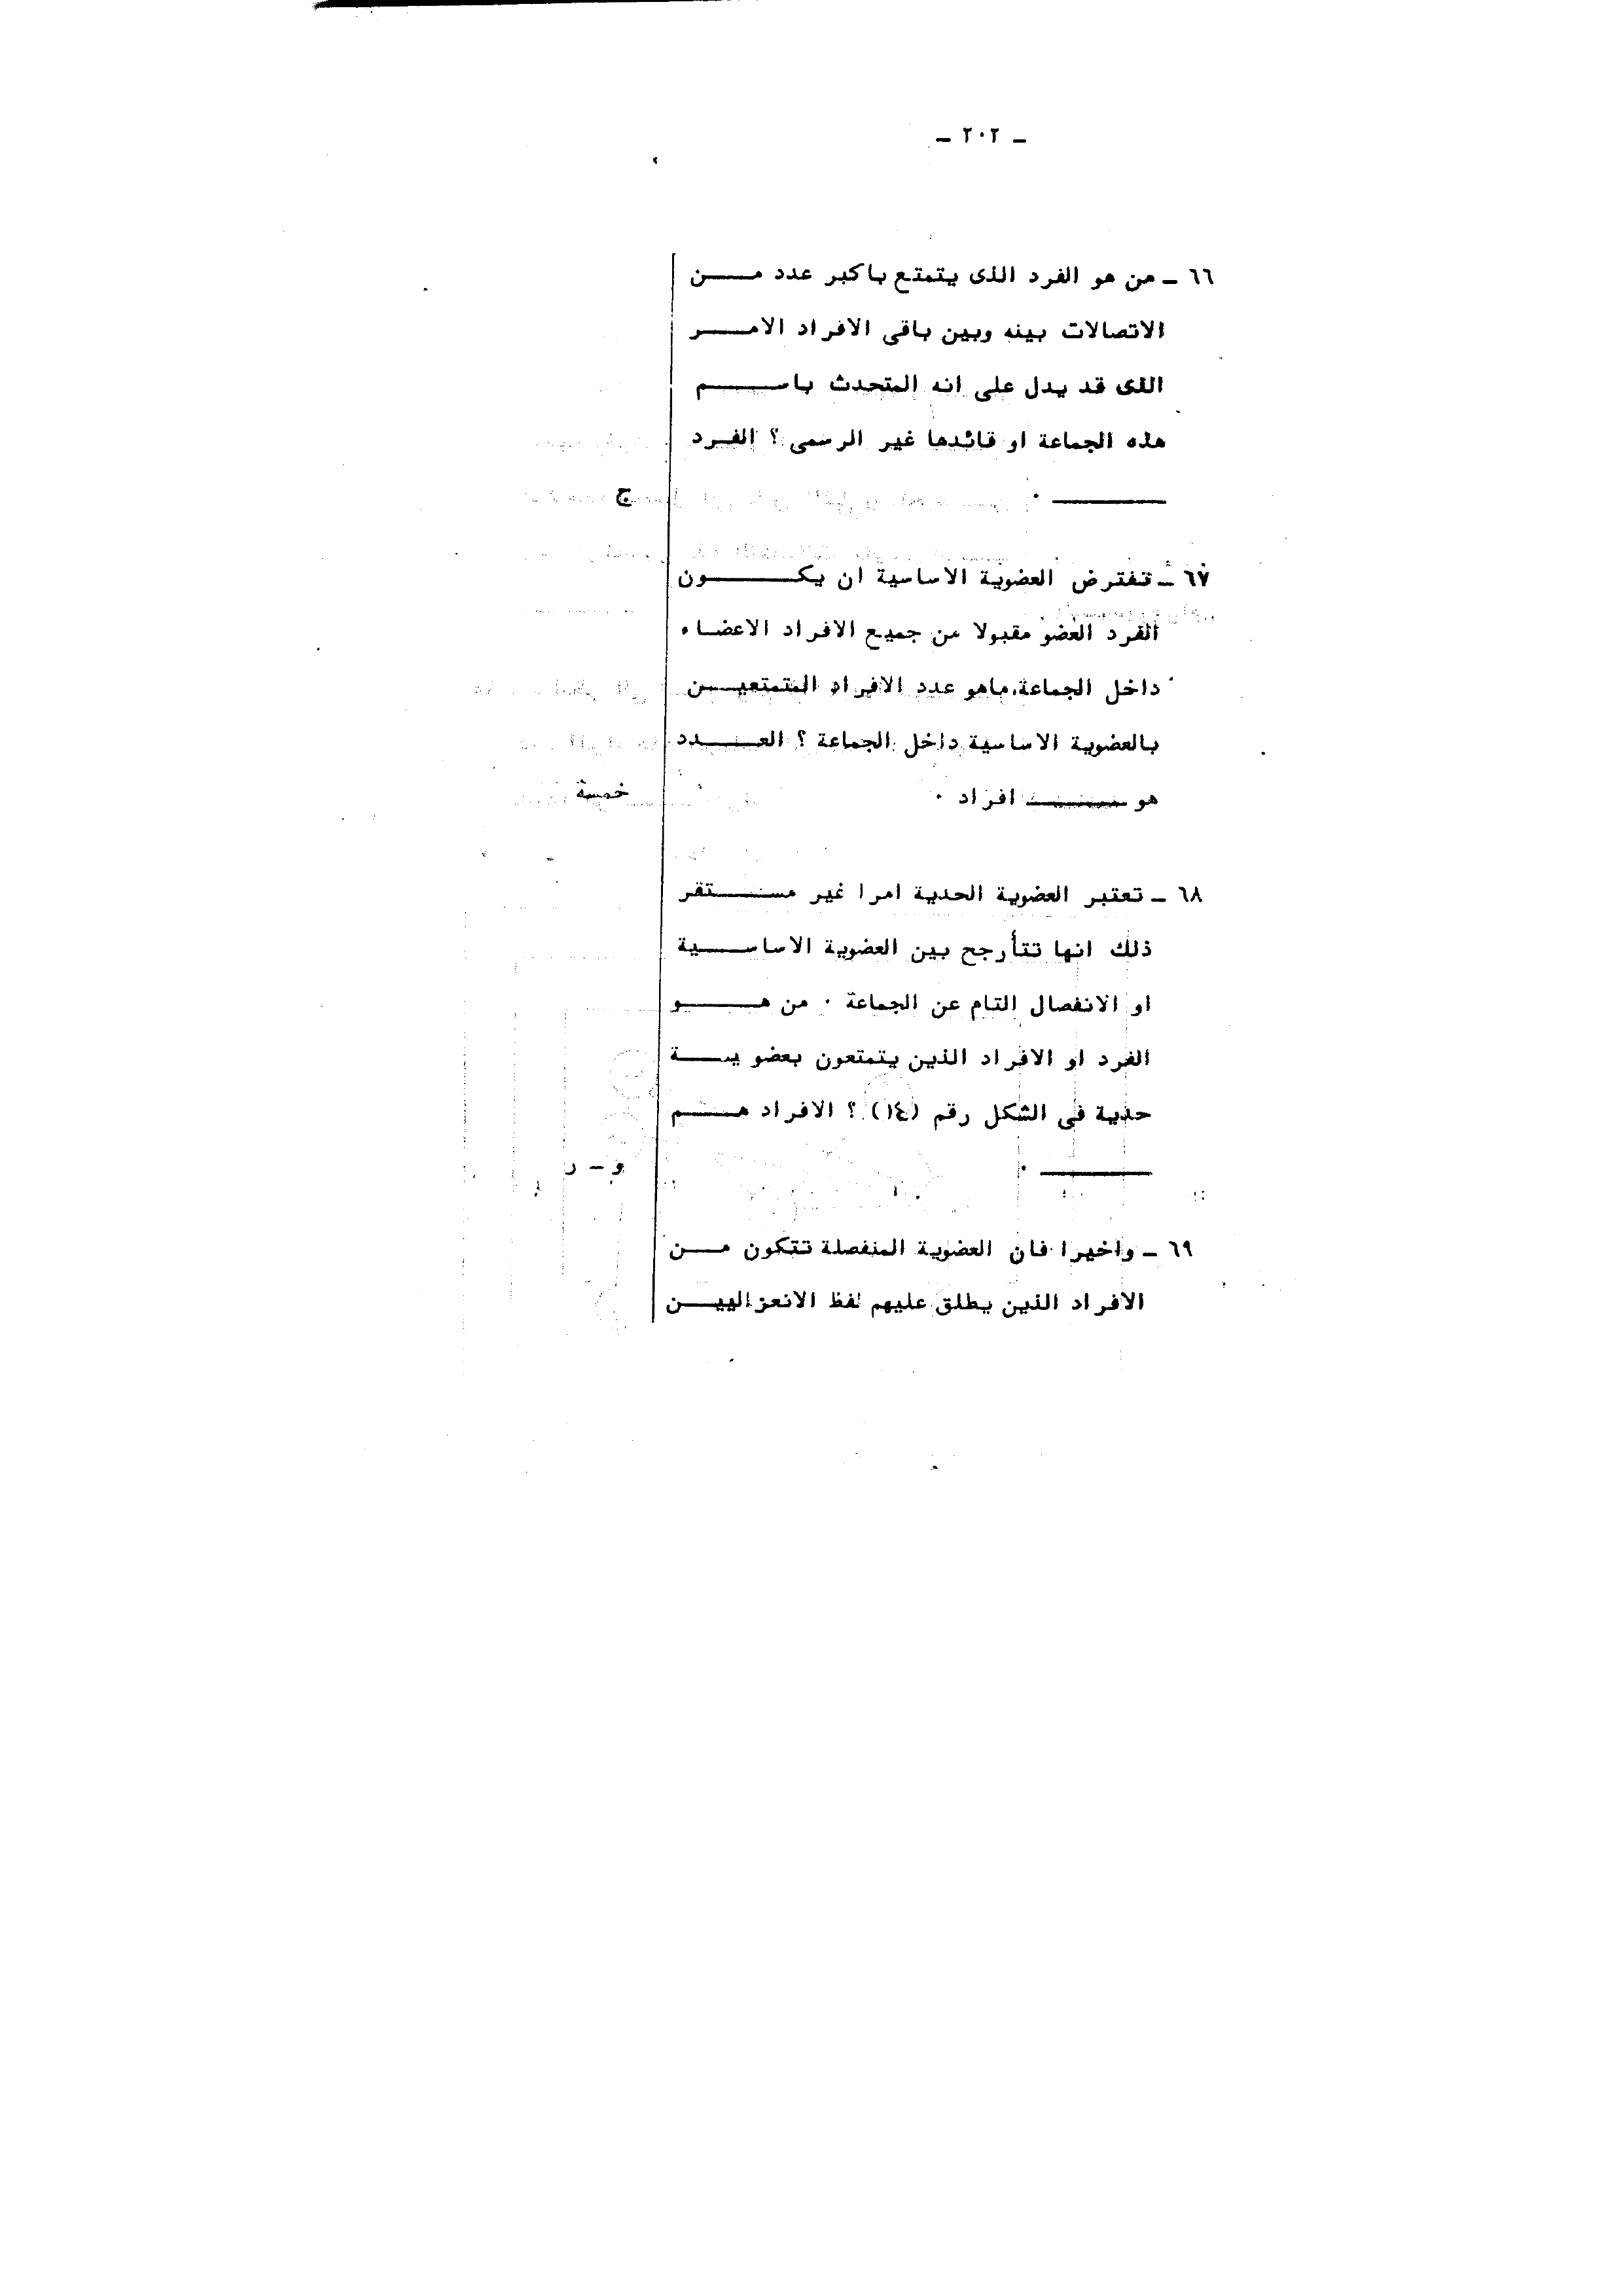 ـ ٢٠٢ ـ
٦٦ ـ من هو الفرد الذى يتمتع باكبر عدد مـــن
الاتصالات بينه وبين باقى الافراد الامـــر
الذى قد يدل على انه المتحدث باســـم
هذه الجماعة او قائدها غير الرسمى ؟ الفـرد
ــــــــ ٠
ج
٦٧ ـ تفترض العضوية الاساسية ان يكـــون
الفرد العضو مقبولا من جميع الافراد الاعضـاء
داخل الجماعة، ماهو عدد الافراد المتمتعيـــن
بالعضوية الاساسية داخل الجماعة ؟ العـــدد
هو ــــــــ افراد ٠
خمسة
٦٨ ـ تعتبر العضوية الحدية امرا غير مســـتقر
ذلك انها تتأرجح بين العضوية الاساســـية
او الانفصال التام عن الجماعة ٠ من هـــو
الفرد او الافراد الذين يتمتعون بعضويـــة
حدية فى الشكل رقم (١٤) ؟ الافراد هـــم
ــــــــ ٠
و ـ ر
٦٩ ـ واخيرا فان العضوية المنفصلة تتكون مـــن
الافراد الذين يطلق عليهم لفظ الانعزالييـــن